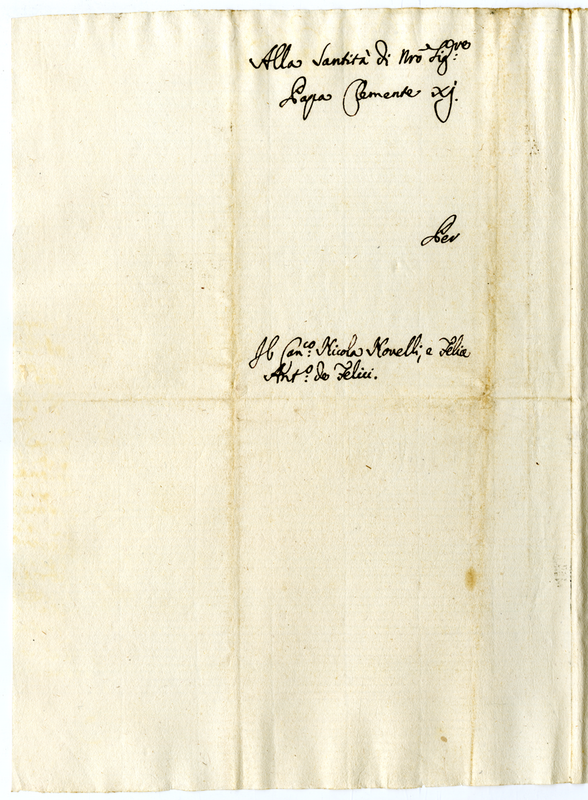 Alla Santità di Nrō Sig.re
Papa Clemente XJ.
Per
Il Can.co Nicola Novelli, e Felice
Ant.o de Felici.